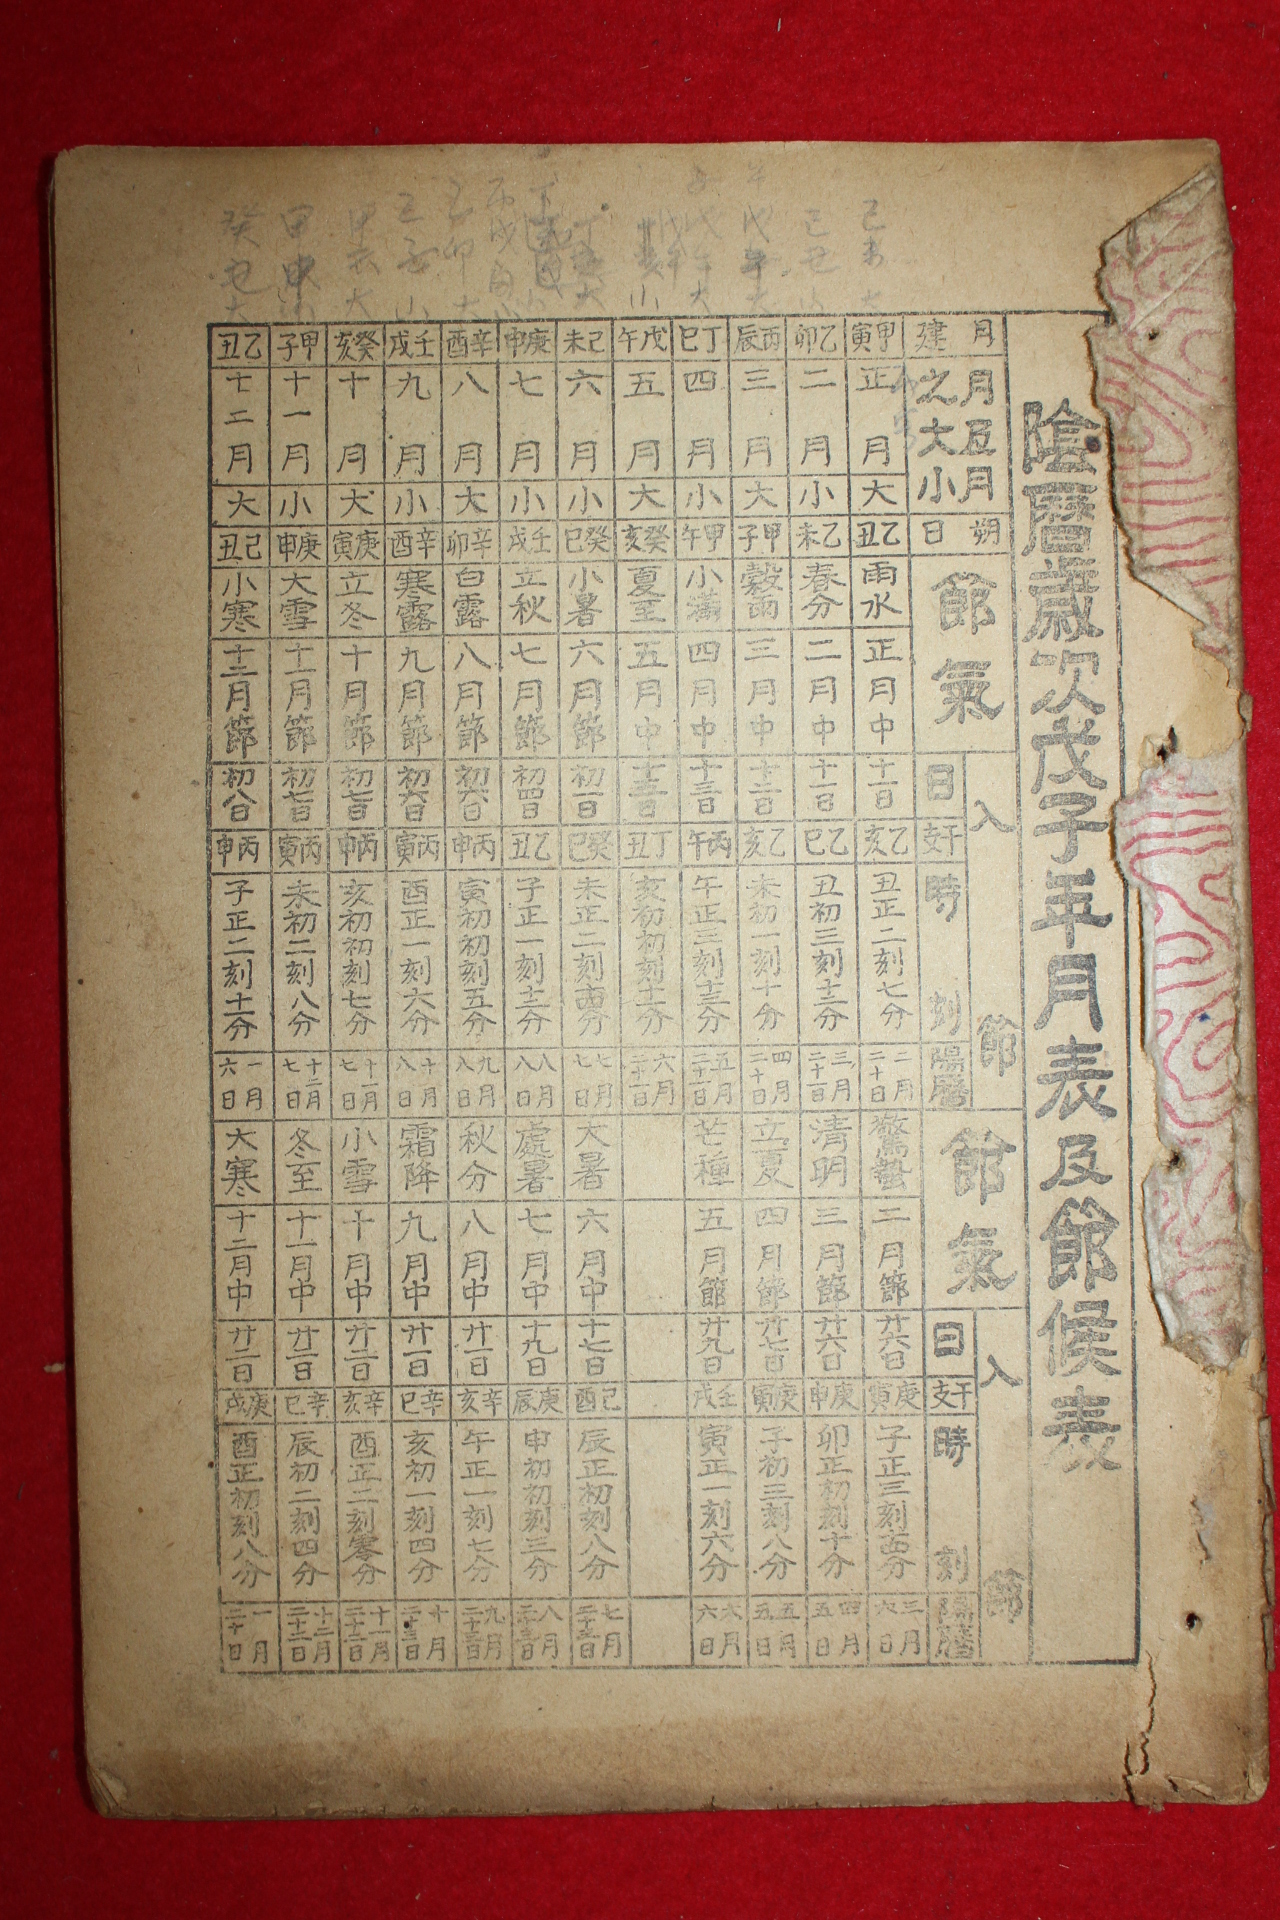 陰曆歲次戊子年月表及節候表
月建
月五月之大小
朔日
節氣
入節
日
干支
時刻
陽曆
節氣
入節
日
干支
時刻
陽曆
甲寅 正月 大 乙丑 雨水 正月中 十一日 乙亥 丑正二刻七分 二月二十日 驚蟄 二月節 廿六日 庚寅 子正三刻十四分 三月六日
乙卯 二月 小 乙未 春分 二月中 十一日 乙巳 丑初三刻十二分 三月二十一日 清明 三月節 廿六日 庚申 卯正初刻十分 四月五日
丙辰 三月 大 甲子 穀雨 三月中 十二日 乙亥 未初一刻十分 四月二十日 立夏 四月節 廿七日 庚寅 子初三刻八分 五月五日
丁巳 四月 小 甲午 小滿 四月中 十三日 丙午 午正三刻十三分 五月二十一日 芒種 五月節 廿九日 壬戌 寅正一刻六分 六月六日
戊午 五月 大 癸亥 夏至 五月中 十五日 丁丑 亥初初刻十一分 六月二十一日
己未 六月 小 癸巳 小暑 六月節 初一日 癸巳 未正二刻十四分 七月七日 大暑 六月中 十七日 己酉 辰正初刻八分 七月二十三日
庚申 七月 小 壬戌 立秋 七月節 初四日 乙丑 子正一刻十二分 八月八日 處暑 七月中 十九日 庚辰 申初初刻三分 八月二十三日
辛酉 八月 大 辛卯 白露 八月節 初六日 丙申 寅初初刻五分 九月八日 秋分 八月中 廿一日 辛亥 午正一刻七分 九月二十三日
壬戌 九月 小 辛酉 寒露 九月節 初六日 丙寅 酉正一刻六分 十月八日 霜降 九月中 廿一日 辛巳 亥初一刻四分 十月二十三日
癸亥 十月 大 庚寅 立冬 十月節 初七日 丙申 亥初初刻七分 十一月七日 小雪 十月中 廿二日 辛亥 酉正二刻零分 十一月二十二日
甲子 十一月 小 庚申 大雪 十一月節 初七日 丙寅 未初二刻八分 十二月七日 冬至 十一月中 廿二日 辛巳 辰初二刻四分 十二月二十二日
乙丑 十二月 大 己丑 小寒 十二月節 初八日 丙申 子正二刻十一分 一月六日 大寒 十二月中 廿二日 庚戌 酉正初刻八分 一月二十日
己未 大
己丑 小
甲辰 大
癸丑 大